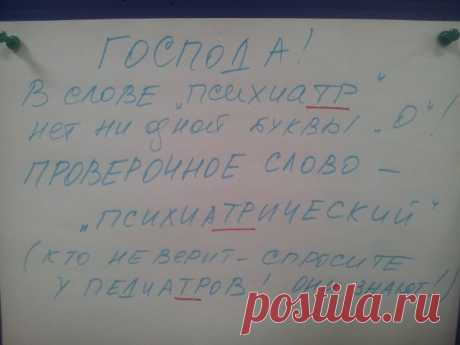 ГОСПОДА!
В СЛОВЕ „ПСИХИАТР"
НЕТ НИ ОДНОЙ БУКВЫ „О"!
ПРОВЕРОЧНОЕ СЛОВО –
„ПСИХИАТРИЧЕСКИЙ"
(КТО НЕ ВЕРИТ – СПРОСИТЕ
У ПЕДИАТРОВ! ОНИ ЗНАЮТ!)
postila.ru